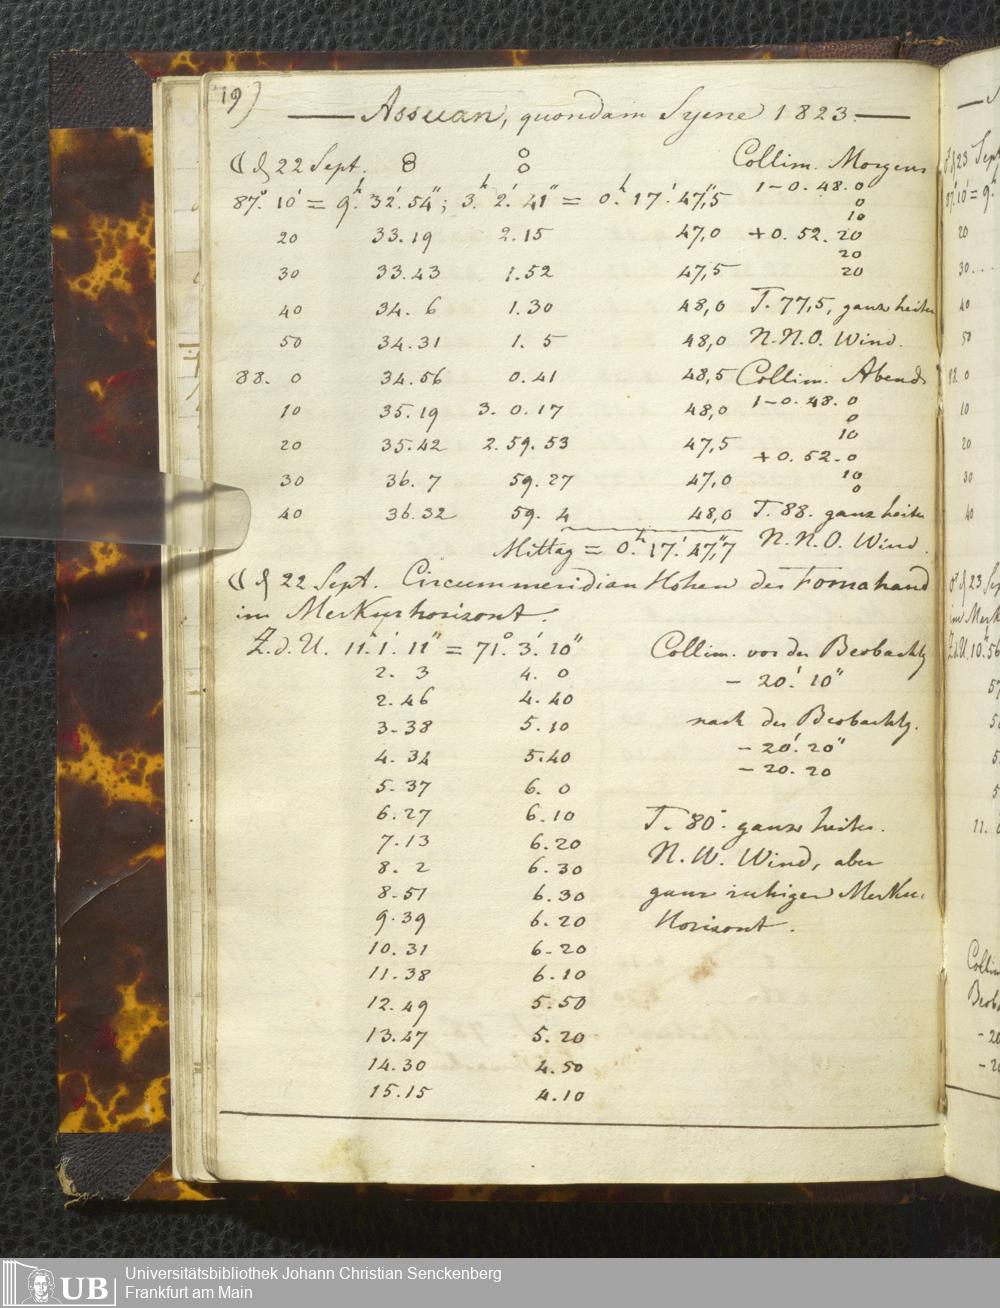 19)
Assuan, quondam Syene 1823.
☾ d 22 Sept. 8 8 Collim. Morgens
87.° 10' = 9.h 32.' 54"; 3.h 2.' 41" = 0.h 17.' 47,"5 1-0.48.0
0
10
20 33.19 2.15 47,0 +0.52.20
20
30 33.43 1.52 47,5 20
40 34. 6 1.30 48,0 T. 77,5, ganz heiter
50 34.31 1. 5 48,0 N.N.O. Wind.
88. 0 34.56 0.41 48,5 Collim. Abends
10 35.19 3. 0.17 48,0 1-0.48.0
0
10
20 35.42 2.59.53 47,5 +0.52.0
30 36. 7 59.27 47,0 10
0
40 36.32 59. 4 48,0 T. 88. ganz heiter
Mittag = 0.h 17.' 47,"7 N.N.O. Wind.
☾ d 22 Sept. Circummeridian Höhen des Fomahand
im Merkurhorizont.
Z.d.U. 11.h 1.' 11" = 71.° 3.' 20" Collim. vor der Beobachtg
2. 3 4. 0 - 20.' 10"
2.46 4.40
3.38 5.10 nach der Beobachtg.
4.34 5.40 - 20.' 20"
- 20.20
5.37 6. 0
6.27 6.10 T. 80°. ganz heiter.
7.13 6.20
8. 2 6.30 N.W. Wind, aber
8.51 6.30 ganz ruhiger Merkur
9.39 6.20 Horizont.
10.31 6.20
11.38 6.10
12.49 5.50
13.47 5.20
14.30 4.50
15.15 4.10
♂ d 23 Sept
87.° 10' = 9.h
20
30...
40
50
88. 0
10
20
30
40
♂ d 23 Sep
im Merk
Z.d.U. 10.h 56
11. 0
Collim
Beob
- 20
- 20
UB
Universitätsbibliothek Johann Christian Senckenberg
Frankfurt am Main